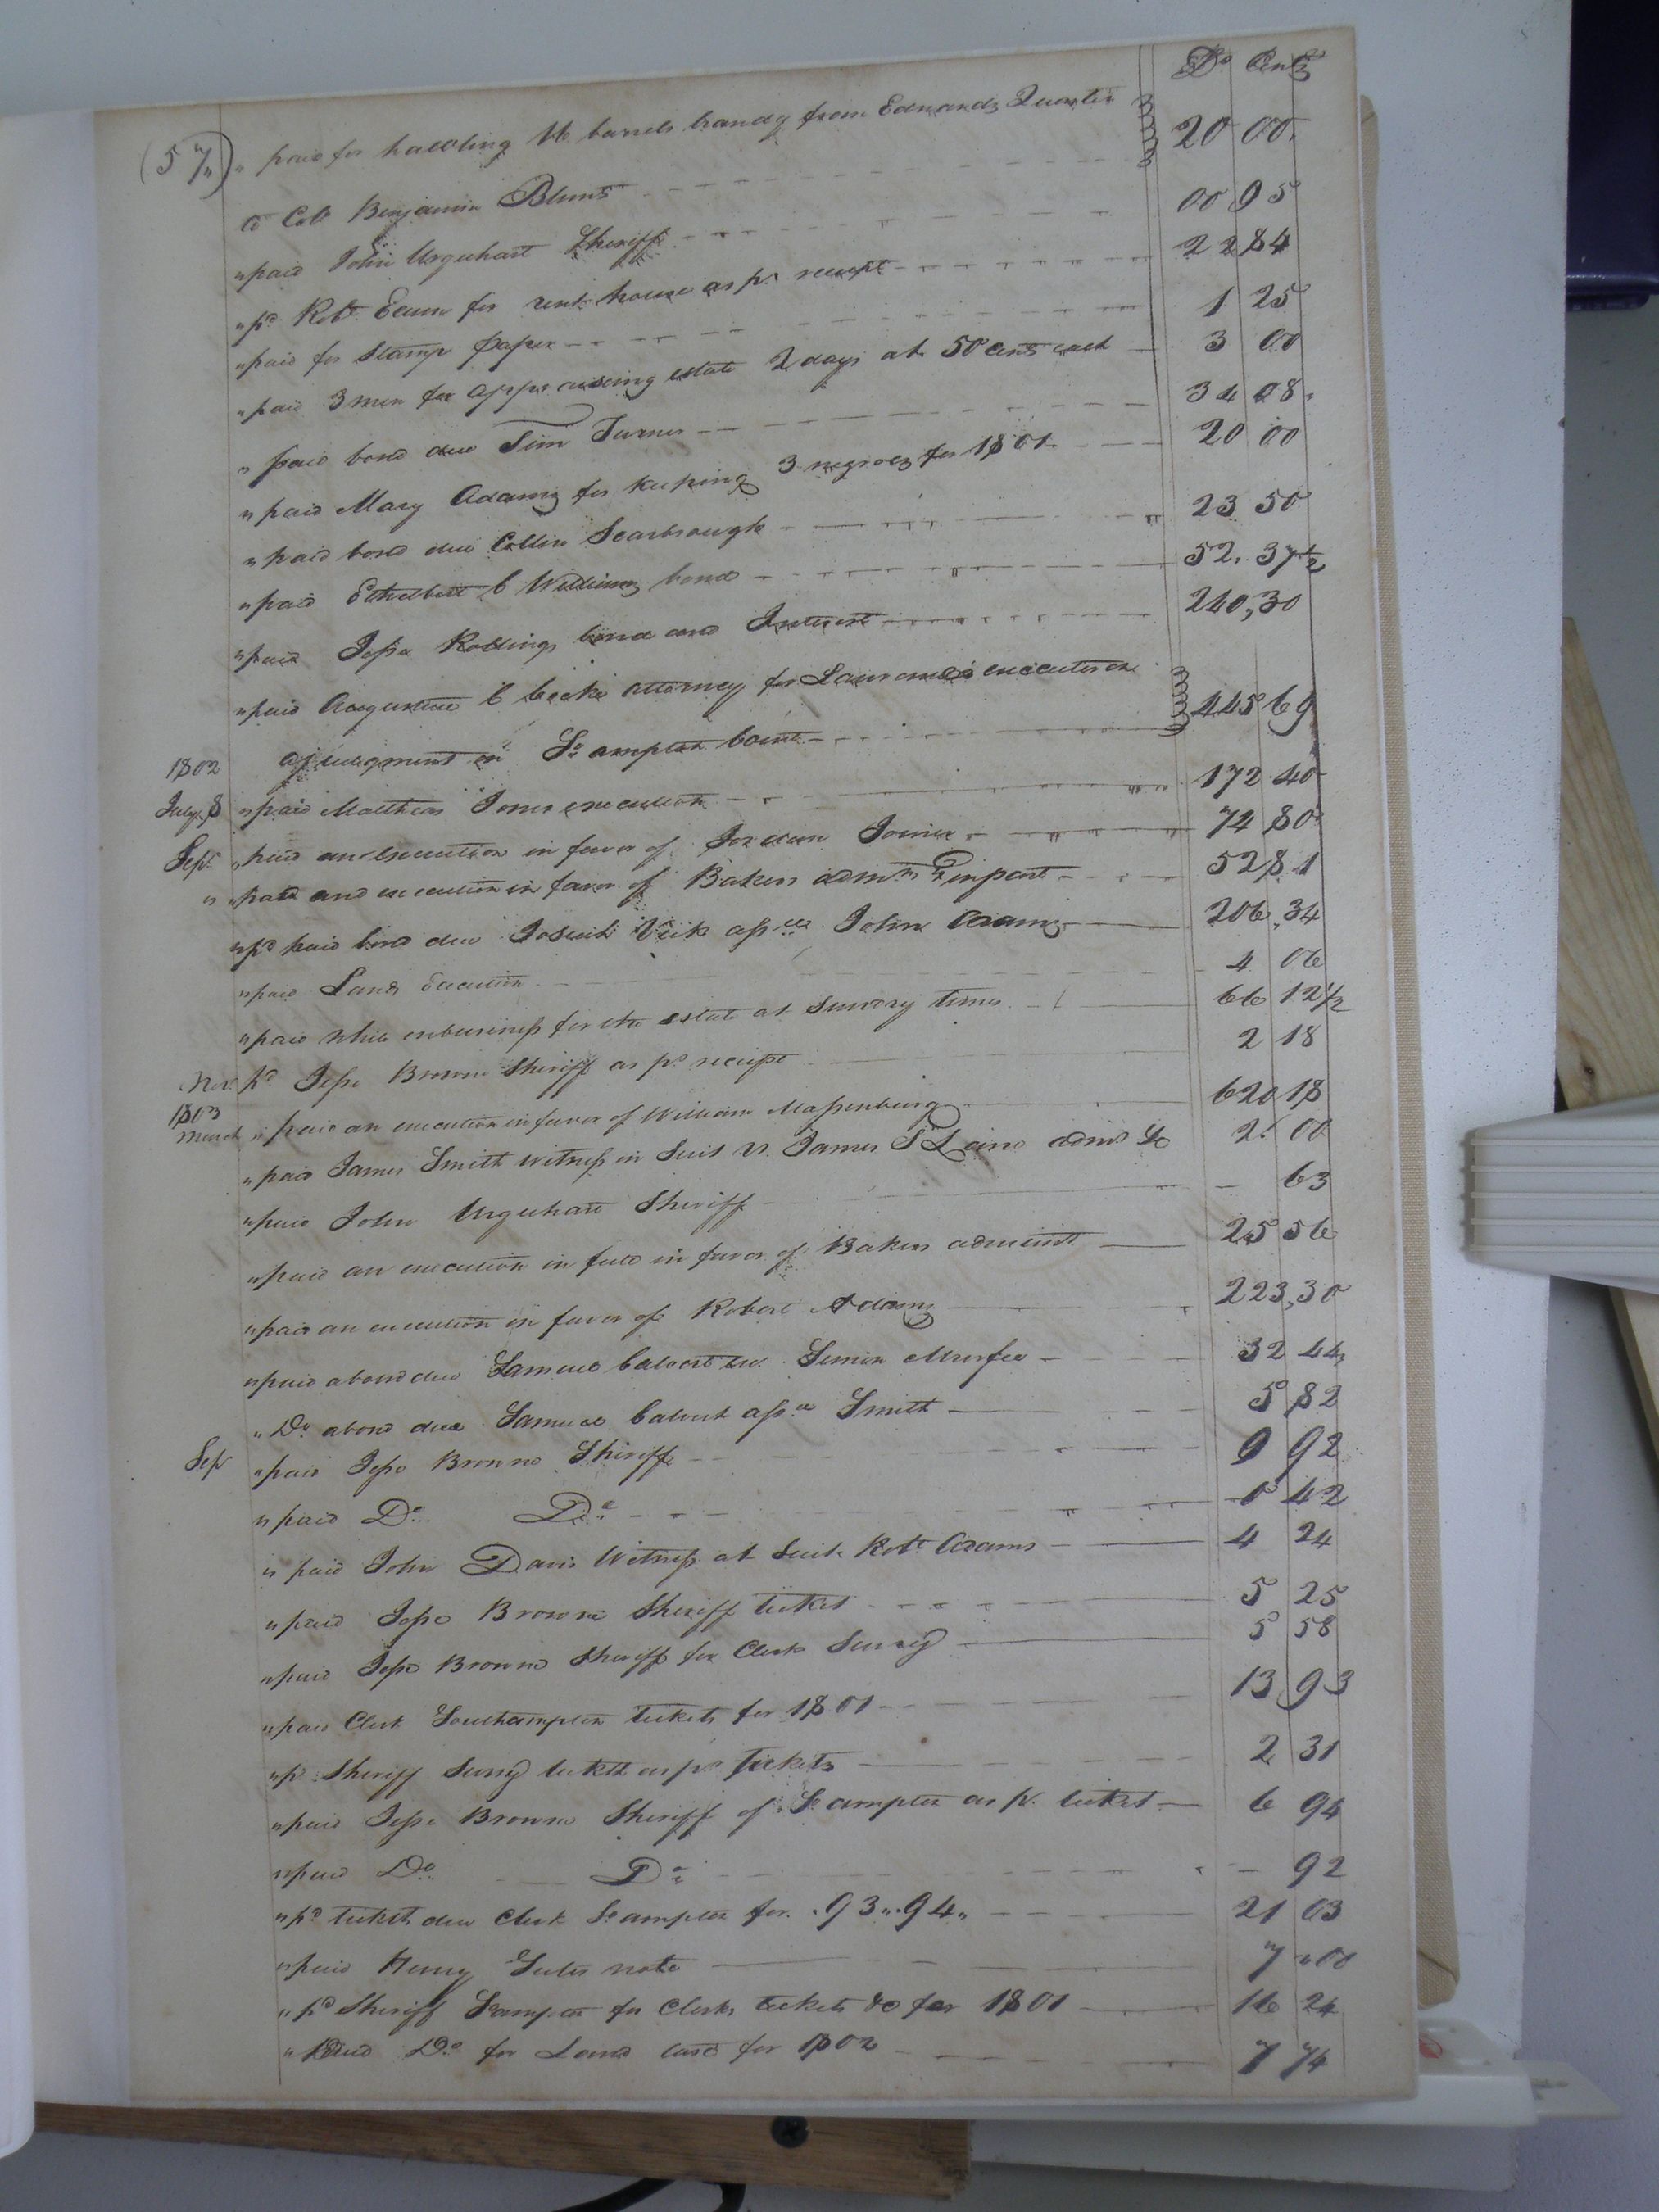 Do Cents
(57) " paid for hawling 16 barrels brandy from Edmunds Quarter 20 00
to Colo Benjamin Blunt
" paid John Urquhart Sheriff 00 95
" pd Robt Eeum for rent house as pr receipt 22 84
" paid for Stamp paper 1 25
" paid 3 men for appraiseing estate 2 days at 50 Cents each 3 00
" paid bond due Tim Turner 34 08
" paid Mary Adams for keeping 3 negroes for 1801 20 00
" paid bond due Collin Scarbrough 23 50
" paid Ethelbert C Williams bond 52. 37 1/2
" paid Jesse Rollings bond and Interest 240,30
" paid Augustine C Cocke attorney for Laurence's execution 445 69
of judgment in So ampton Count
1802
July 8 " paid Matthew Jones execution 172 40
Sept " paid an execution in favor of Jordan Joiner 74 80
" " paid and execution in favor of Bakers admrs in part 52 81
" pd paid bond due Josiah Vick assee John Adams 206,34
" paid Land Execution 4 06
" paid while on business for the estate at sundry times 66 12 1/2
Nov. pd Jesse Browne Sheriff as pr receipt 2 18
1803
March " paid an execution in favor of William Massenburg 620 18
" paid James Smith witness in Suit vs James S Lane admr &c 2. 00
" paid John Urquhart Sheriff 63
" paid an execution in full in favor of Bakers administ 25 56
" paid an execution in favor of Robert Adams 223,30
" paid a bond due Samuel Calvert Simon Murfee 32 44
" Do a bond due Samuel Calvert assee Smith 5 82
Sep " paid Jesse Browne Sheriff 0 92
" paid Do Do 0 42
" paid John Davis Witness at Suit Robt Adams 4 24
" paid Jesse Browne Sheriff ticket 5 25
" paid Jesse Browne Sheriff for Clerk Surry 5 58
" paid Clerk Southampton tickets for 1801 13 93
" pd Sheriff Surry as pr tickets 2 31
" paid Jesse Browne Sheriff of So ampton as pr ticket 6 94
" paid Do Do 92
" pd tickets due Clerk So ampton for .93".94" 21 03
" paid Henry note 7 "00
" pd Sheriff So ampton for Clerks tickets &c for 1801 16 24
" Do for Land for 1802 7 74